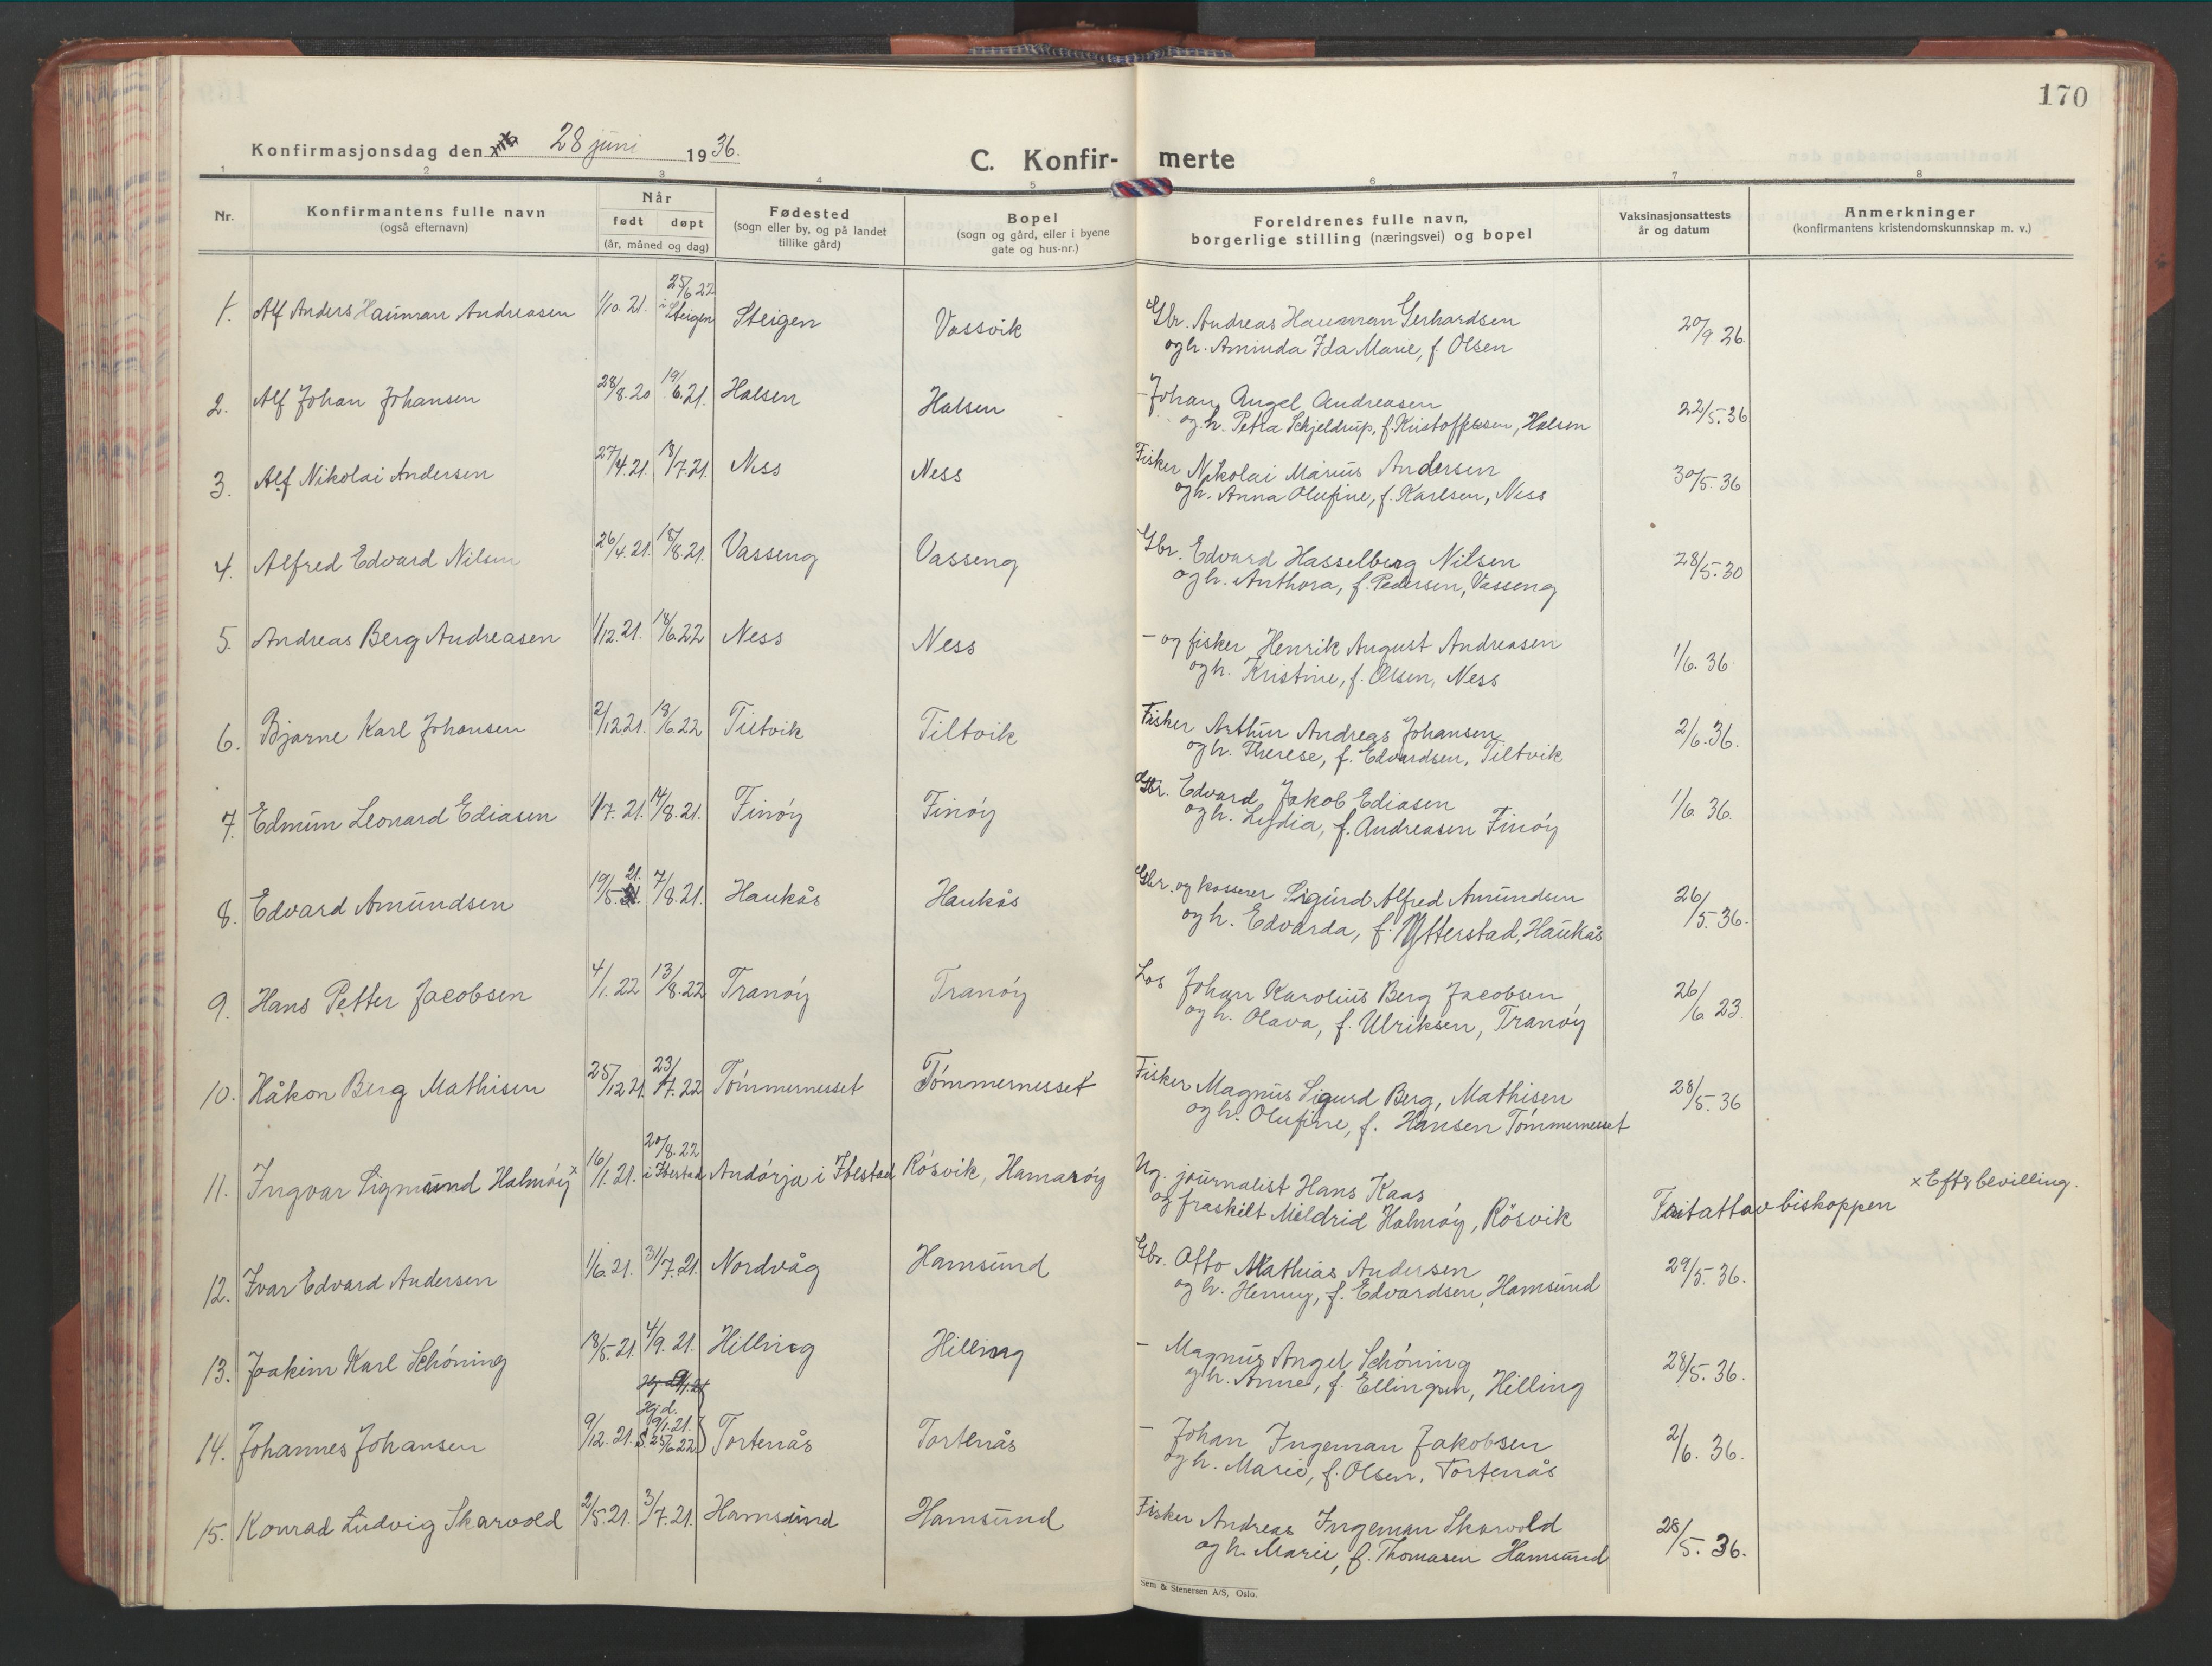 170
Konfirmasjonsdag den 28 juni 1936.
C. Konfirmerte
1 2 3 4 5 6 7 8
Nr. Konfirmantens fulle navn (også efternavn) Når født døpt (år, måned og dag) Fødested (sogn eller by, og på landet tillike gård) Bopel (sogn og gård, eller i byene gate og hus-nr.) Foreldrenes fulle navn, borgerlige stilling (næringsvei) og bopel Vaksinasjonsattests år og datum Anmerkninger (konfirmantens kristendomskunnskap m. v.)
1. Alf Anders Hauman Andreasen 1/10.21. 25/6 22 i Steigen Steigen Vassvik Gbr. Andreas Hauman Gerhardsen 20/9 26
og h. Aminda Ida Marie, f. Olsen
2. Alf Johan Johansen 28/8.20 19/6.21. Halsen Halsen - Johan Angel Andreasen 22/5.36
og h. Petra Schjeldrup, f. Kristoffersen, Halsen
3. Alf Nikolai Andersen 27/4.21. 18/7.21. Ness Ness Fisker Nikolai Marius Andersen 30/5.36
og h. Anna Olufine, f. Karlsen, Ness
4. Alfred Edvard Nilsen 26/4.21. 18/8.21. Vasseng Vasseng Gbr. Edvard Hasselberg Nilsen 28/5.30
og h. Anthora, f. Pedersen, Vasseng
5. Andreas Berg Andreasen 1/12.21. 18/6.22 Ness Ness - og fisker Henrik August Andreasen 1/6.36
og h. Kristine, f. Olsen, Ness
6. Bjarne Karl Johansen 2/12 21. 18/6.22 Tiltvik Tiltvik Fisker Arthur Andreas Johansen 2/6.36.
og h. Therese, f. Edvardsen, Tiltvik
7. Edmun Leonard Ediasen 1/7.21. 14/8.21. Finöy Finöy Gbr. Edvard Jakob Ediasen 1/6 36.
og h. Lydia, f. Andreasen Finöy
8. Edvard Amundsen 19/5. 21. 7/8.21. Haukås Haukås Gbr. og kasserer Sigurd Alfred Amundsen 26/5.36.
og h. Edvarda, f. Ytterstad, Haukås
9. Hans Petter Jacobsen 4/1.22 13/8.22 Tranöy Tranöy Los Johan Karolius Berg Jacobsen 26/6 23.
og h. Olava, f. Ulriksen, Tranöy
10. Håkon Berg Mathisen 25/12 21 23/7.22 Tömmernesset Tömmernesset Fisker Magnus Sigurd Berg, Mathisen 28/5.36
og h. Olufine, f. Hansen Tömmernesset
11. Ingvar Sigmund Halmöy x 16/1.21. 20/8.22 i Ibestad Andörja i Ibestad Rösvik, Hamaröy Ug. journalist Hans Kaas x Eft. bevilling.
og fraskilt Meldrid Halmöy, Rösvik Fritatt av biskoppen
12. Ivar Edvard Andersen 1/6.21. 31/7.21. Nordvåg Hamsund Gbr. Otto Mathias Andersen 29/5.36.
og h. Henny, f. Edvardsen, Hamsund
13. Joakim Karl Schöning 18/5.21. 4/9.21. Hilling Hilling - Magnus Angel Schöning 28/5.36.
og h. Anne, f. Ellingsen, Hilling
14. Johannes Johansen 9/12.21. Hjd. 9/1.21. S. 25/6.22 Tortenås Tortenås - Johan Ingeman Jakobsen 2/6.36.
og h. Marie, f. Olsen, Tortenås
15. Konrad Ludvig Skarvold 2/5.21. 3/7.21. Hamsund Hamsund Fisker Andreas Ingeman Skarvold 28/5.36.
og h. Marie, f. Thomasen Hamsund
Sem & Stenersen A/S, Oslo.